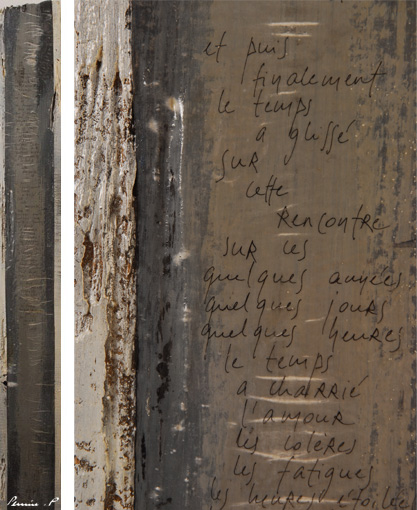 et puis
finalement
le temps
a glissé
sur
cette
Rencontre
sur les
quelques années
quelques jours
quelques heures
le temps
a charrié
l'amour
les colères
les fatigues
les heures étoilées
Perrine.P